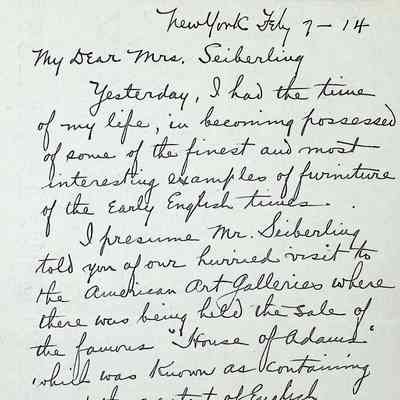 New York Feby 7-14
My Dear Mrs. Seiberling
Yesterday, I had the time
of my life, in becoming possessed
of some of the finest and most
interesting examples of furniture
of the Early English times.
I presume Mr. Seiberling
told you of our hurried visit to
the American Art Galleries where
there was being held the sale of
the famous "House of Adams"
which was Known as containing
of English